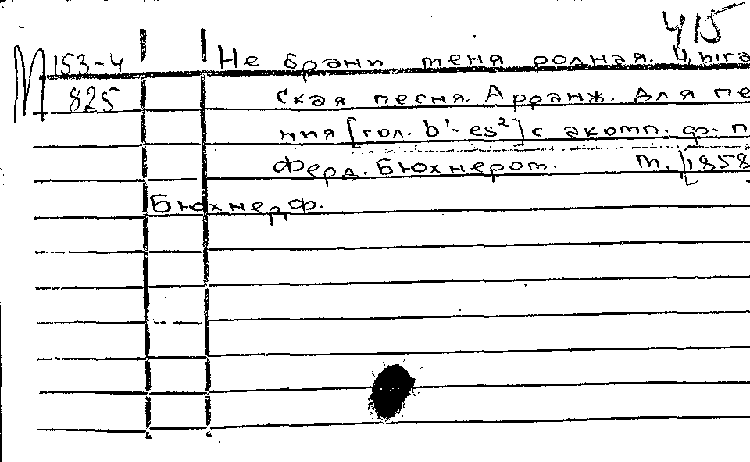 415
М 153-4 Не брани меня родная. Цыга
825 ская песня. Арранж. для пе
ния [гол. b'-es²] с акомп. ф.-п
Ферд. Бюхнером. М. 1858
Бюхнер, Ф.